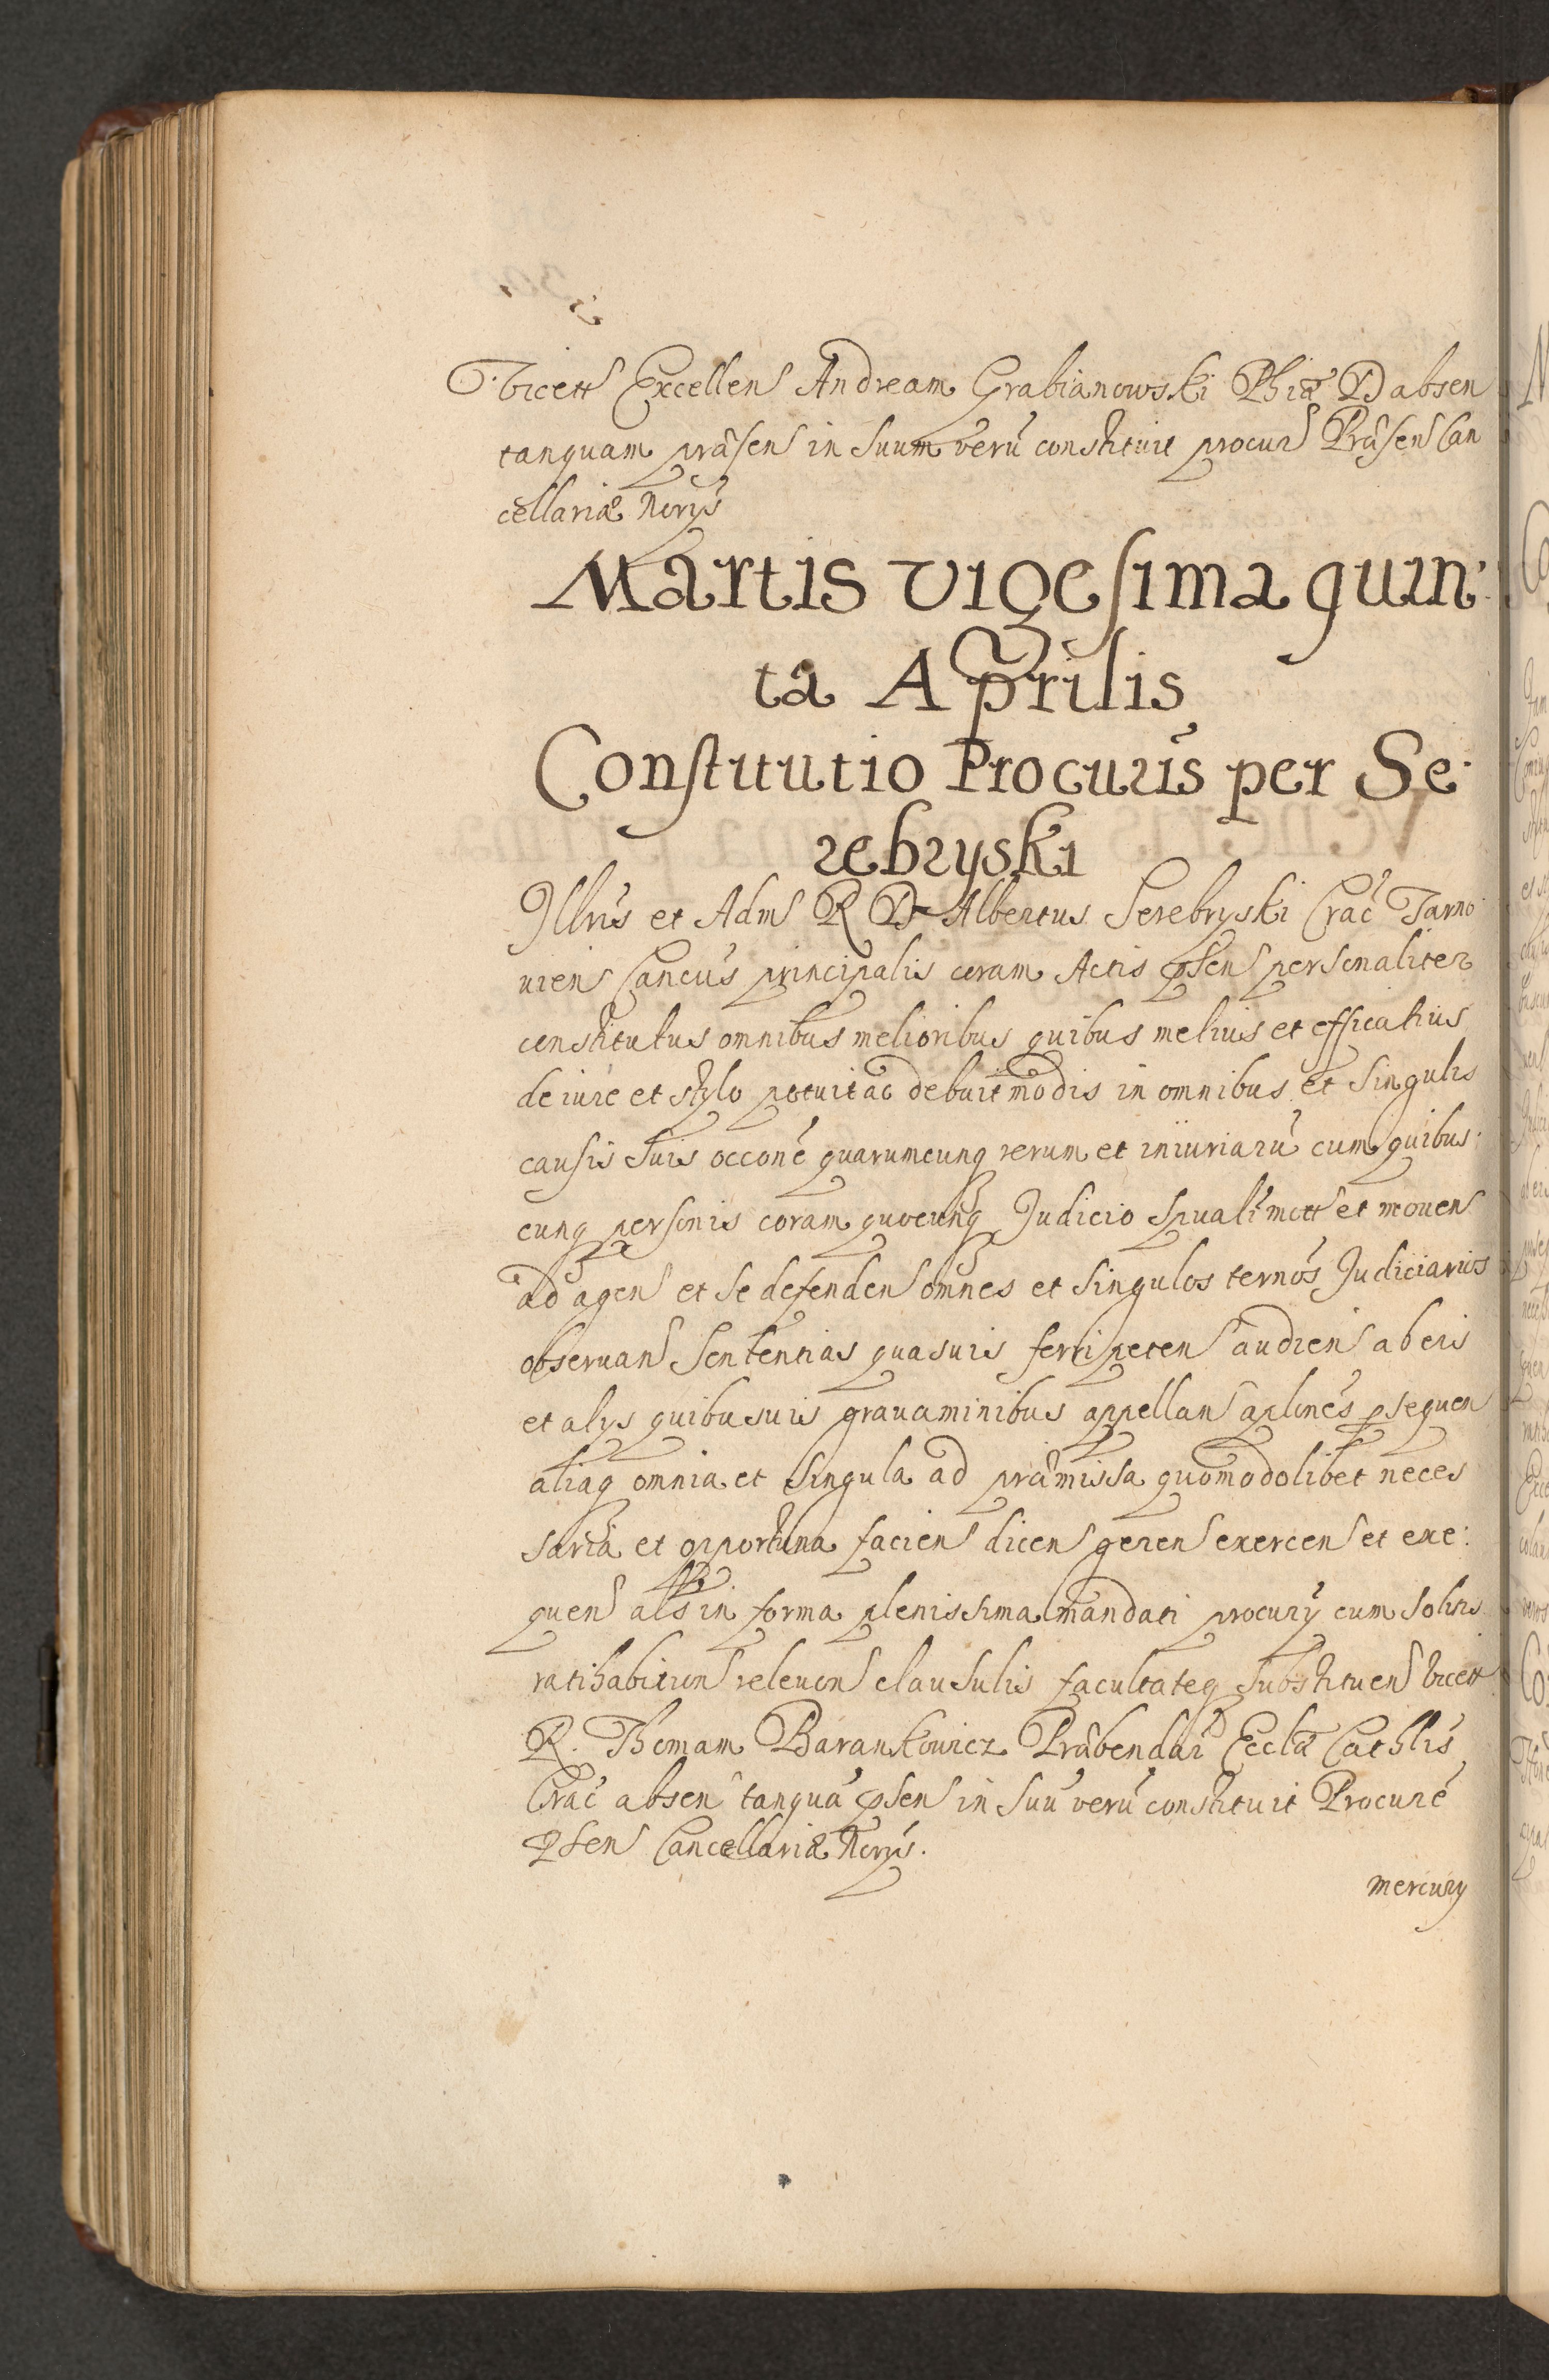 Vicett Excellen Andream Grabianowski Phiæ D absen
tanquam præsen in Suum verũ constituit procur Præsen Can
cellariæ Norys
Martis vigesima quin
ta Aprilis
Constitutio Procuris per Se
rebryski
Illris et Adm R D Albertus Serebryski Crac Tarno
vien Cancus principalis coram Actis psen personaliter
constitutus omnibus melioribus quibus melius et efficatius
de iure et stylo potuit ac debuit modis in omnibus et Singulis
causis Suis occone quarumcunq rerum et iniuriarũ cum quibus
cunq personis coram quocunq Judicio Spuali mott et mouen
ad agen et Se defenden omnes et Singulos ternos Judiciarios
obseruan Sententias quasuis ferri peten audien ab eis
et alys quibusuis grauaminibus appellan aplones psequen
aliaq omnia et Singula ad præmissa quomodolibet neces
saria et opportuna facien dicen geren exercen et exe:
quen als in forma plenissima mandati procury cum Solitis
ratihabition releuon clausulis facultateq Substituen Vicett
R. Thomam Barankowicz Præbendar Ecclæ Cathlis
Crac absen tanquã psen in Suũ verũ constituit Procure
psen Cancellariæ Norys.
Mercury